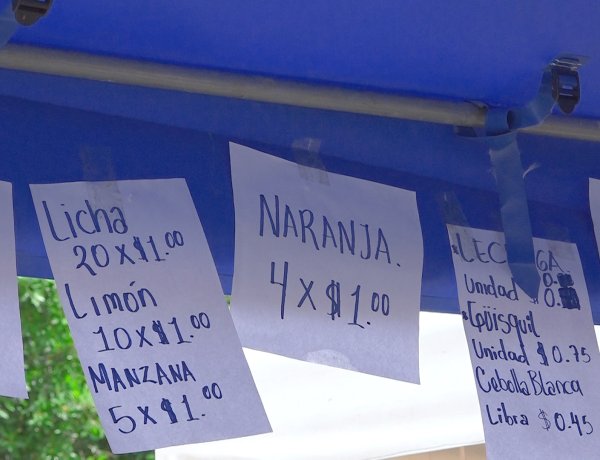 Licha
20 x $1.00
Limón
10 x $1.00
MANZANA
5 x $1.00
NARANJA.
4 x $1.00
Unidad
Unidad $0.75
Cebolla Blanca
Libra $0.45